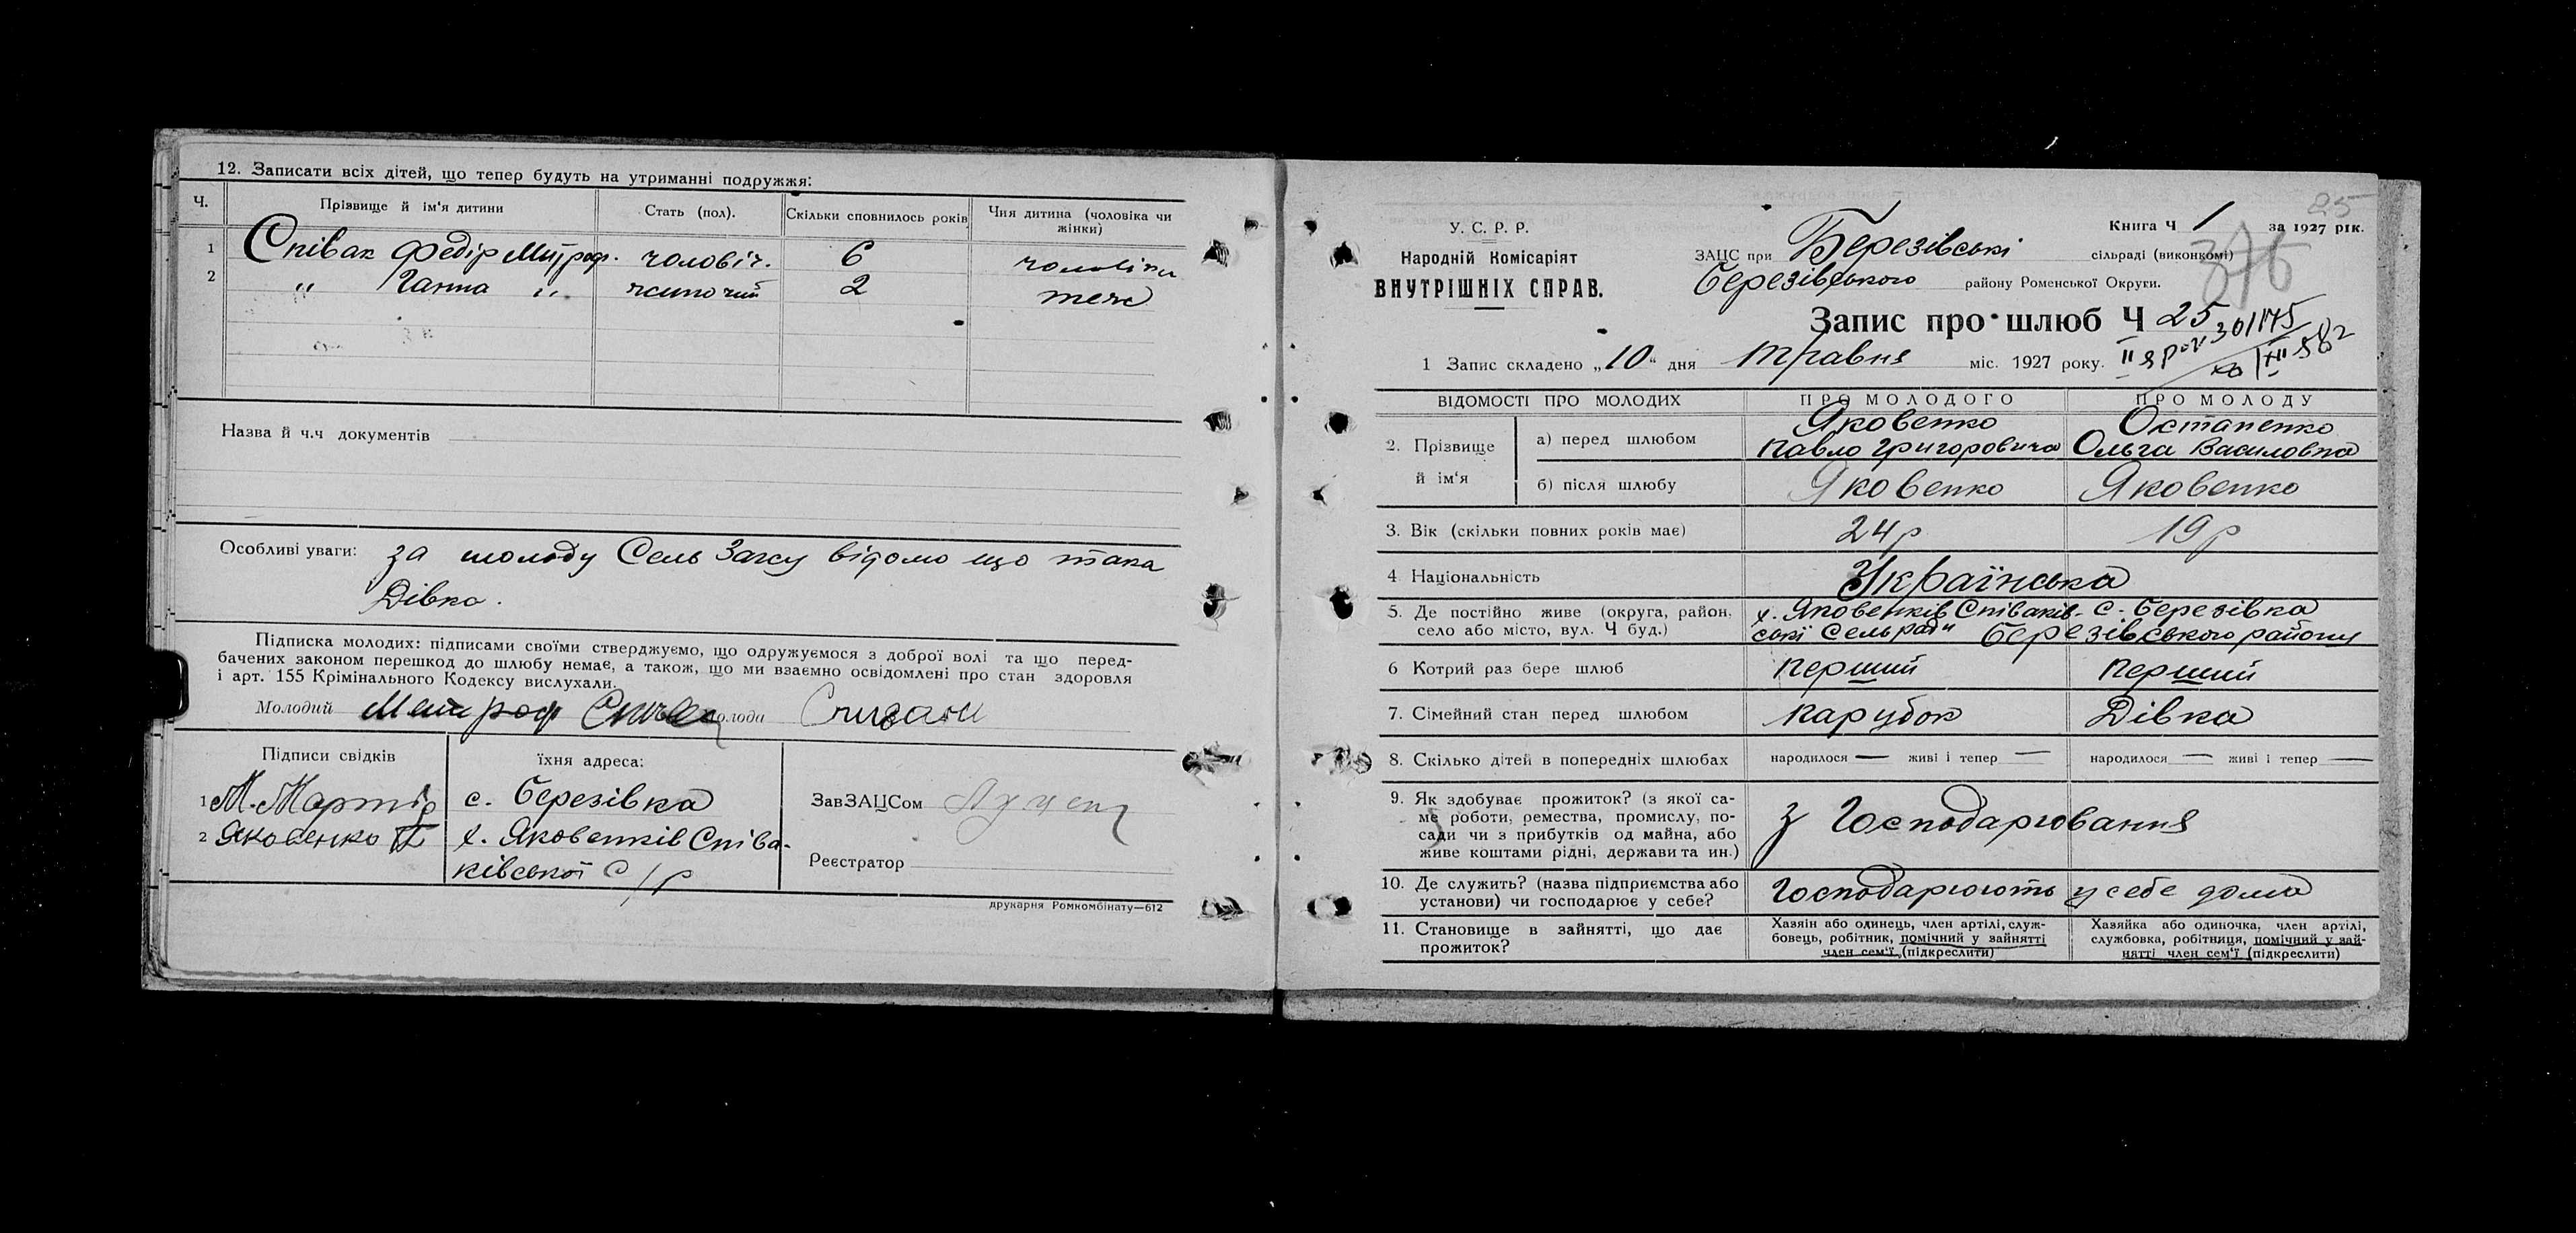 12. Записати всіх дітей, що тепер будуть на утриманні подружжя:
Ч. Прізвище й ім'я дитини Стать (пол). Скільки сповнилось років Чия дитина (чоловіка чи жінки)
1 Співак Федір Митроф. чоловіч. 6 чоловіка
2 " Ганна " жиночий 2 теж
Назва й ч.ч документів
Особливі уваги: за молоду Сель Загсу відомо що така
Дівка.
Підписка молодих: підписами своїми стверджуємо, що одружуємося з доброї волі та що перед-
бачених законом перешкод до шлюбу немає, а також, що ми взаємно освідомлені про стан здоровля
і арт. 155 Крімінального Кодексу вислухали.
Молодий Митроф Співак Молода Співак
Підписи свідків їхня адреса:
1 М. Мартід с. Березівка ЗавЗАЦСом
2 Яковенко П х. Яковенків Співа-
ківської С/р Реєстратор
друкарня Ромкомбінату—612
25
У. С. Р. Р.
Народній Комісаріят
ВНУТРІШНІХ СПРАВ.
Книга Ч 1 за 1927 рік.
ЗАЦС при Березівські сільраді (виконкомі)
376
Березівського району Роменської Округи.
Запис про шлюб Ч 25
301175
1 Запис складено „10" дня травня міс. 1927 року.
582
ВІДОМОСТІ ПРО МОЛОДИХ ПРО МОЛОДОГО ПРО МОЛОДУ
2. Прізвище й ім'я а) перед шлюбом Яковенко Остапенко
Павло Григоровича Ольга Василовна
б) після шлюбу Яковенко Яковенко
3. Вік (скільки повних років має) 24р 19р
4 Національність Українська
5. Де постійно живе (округа, район, х. Яковенків Співаків- с. Березівка
село або місто, вул. Ч буд.) ські Сельради Березівського району
6 Котрий раз бере шлюб перший перший
7. Сімейний стан перед шлюбом парубок Дівка
8. Скілько дітей в попередніх шлюбах народилося — живі і тепер — народилося — живі і тепер —
9. Як здобуває прожиток? (з якої са-
ме роботи, ремества, промислу, по-
сади чи з прибутків од майна, або
живе коштами рідні, держави та ин.) з Господарювання
10. Де служить? (назва підприємства або
установи) чи господарює у себе? Господарюють у себе дома
11. Становище в зайнятті, що дає
прожиток?
Хазяїн або одинець, член артілі, служ-
бовець, робітник, помічний у зайнятті
член сем'ї (підкреслити)
Хазяйка або одиночка, член артілі,
службовка, робітниця, помічний у зай-
нятті член сем'ї (підкреслити)